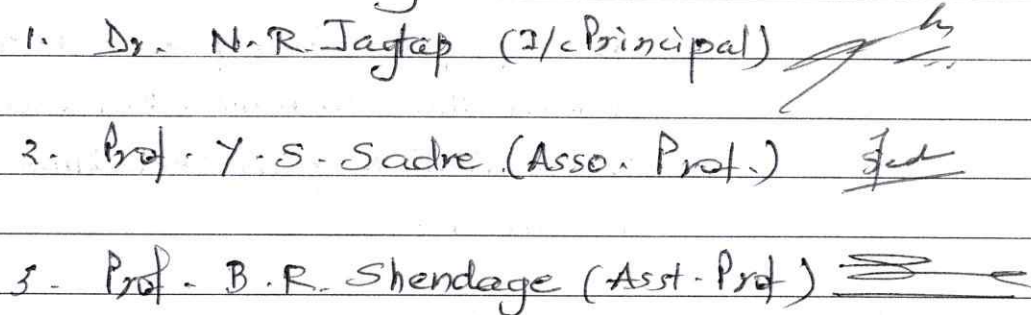 1. Dr. N.R. Jagtap (I/c Principal)
2. Prof. Y.S. Sadre (Asso. Prof.)
3. Prof. B.R. Shendage (Asst. Prof)